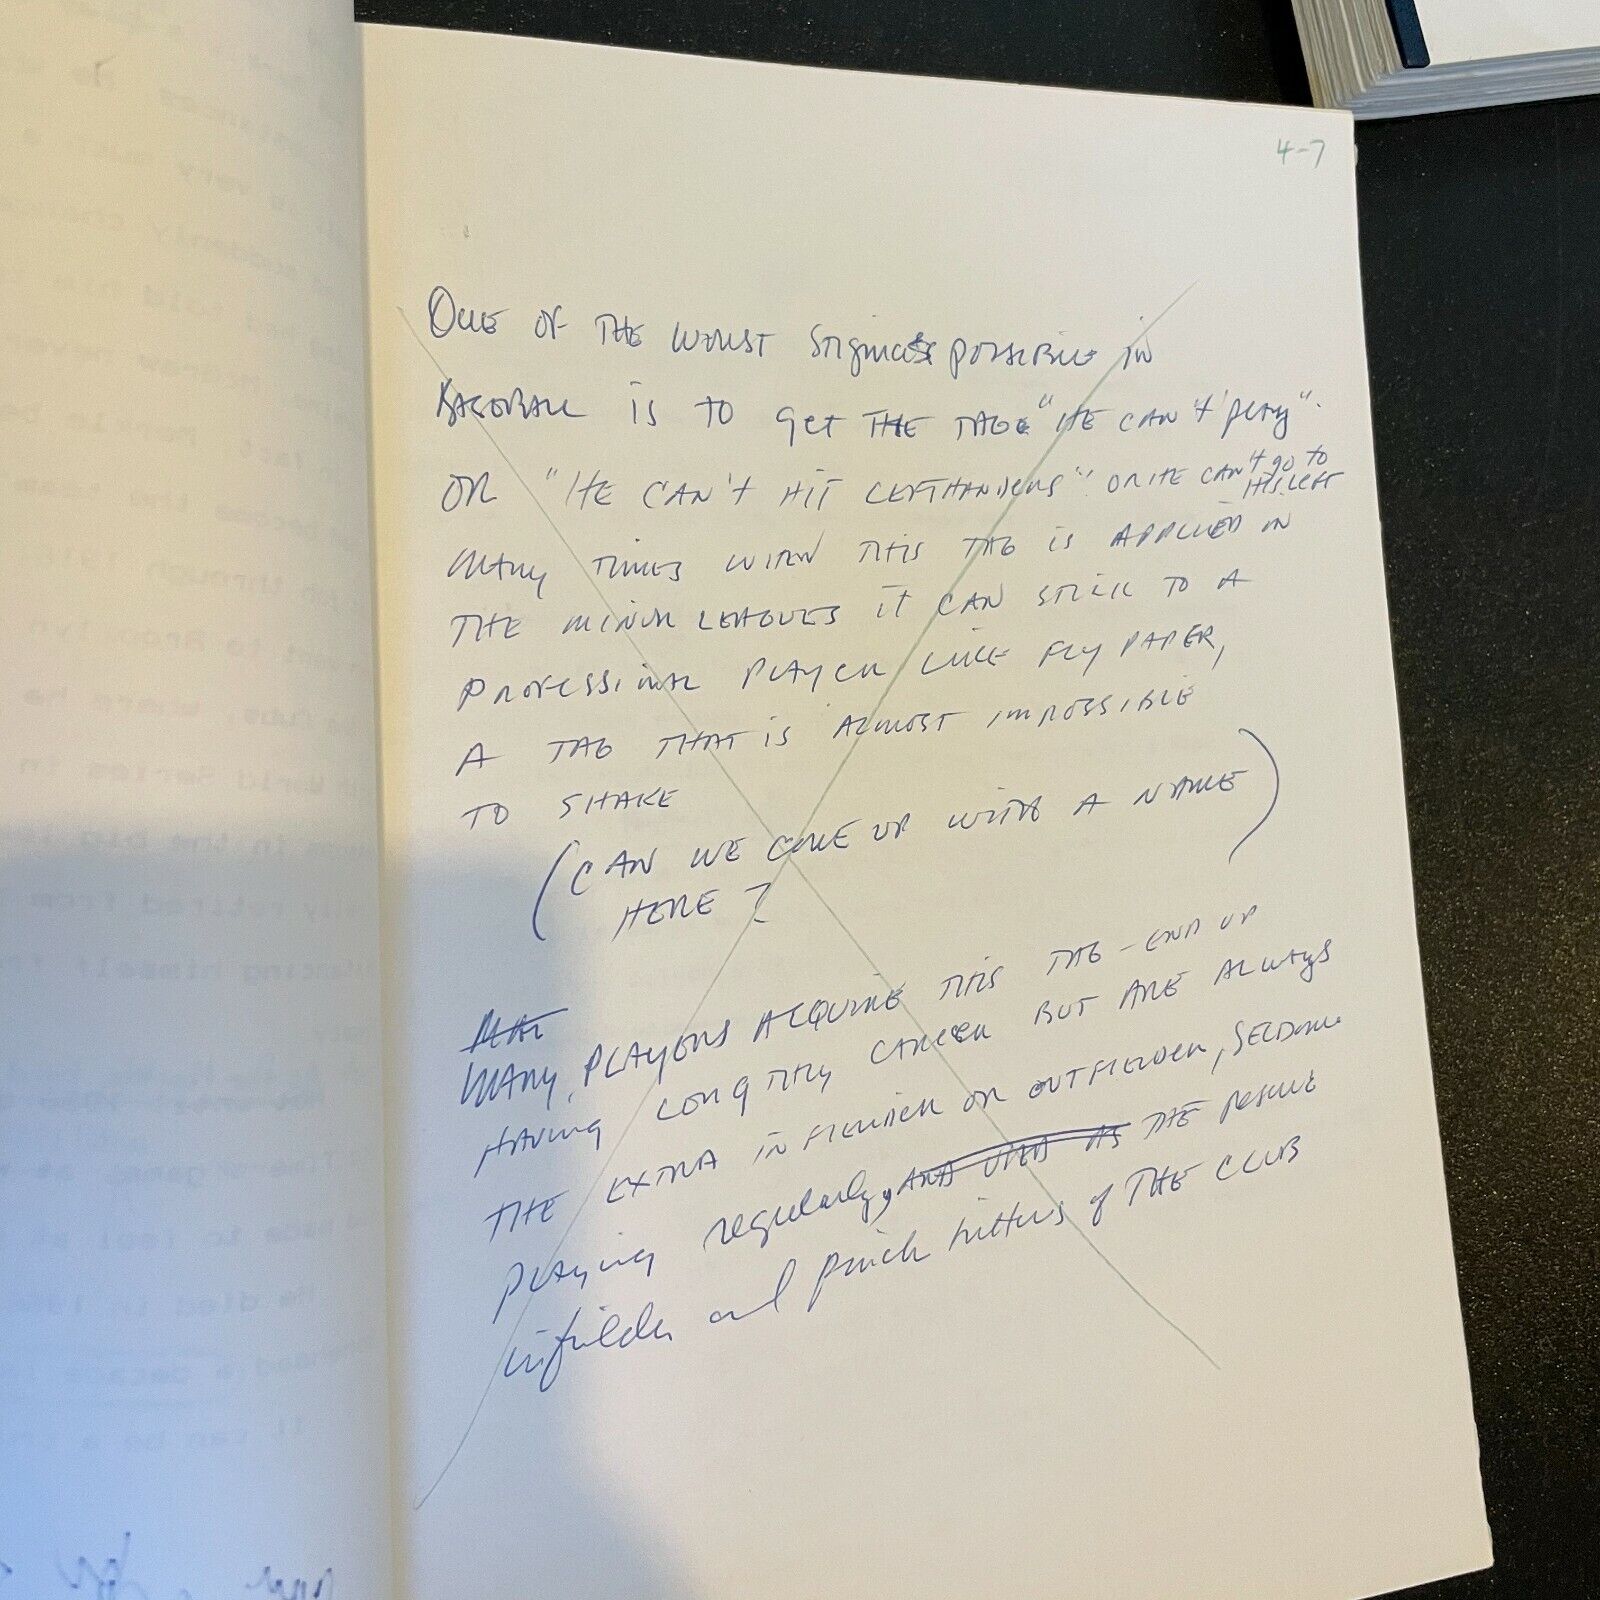 4-7
One of the worst stigmas possible in
Baseball is to get the tag "He can't play".
or "He can't hit lefthanders" or he can't go to
his left
Many times when this tag is applied in
the minor leagues it can stick to a
professional player like fly paper,
A tag that is almost impossible
to shake
(Can we come up with a name
here?)
Many players acquire this tag - end up
having lengthy career but are always
the extra infielder or outfielder, seldom
playing regularly, and used as the
infielder and pinch hitters of the club